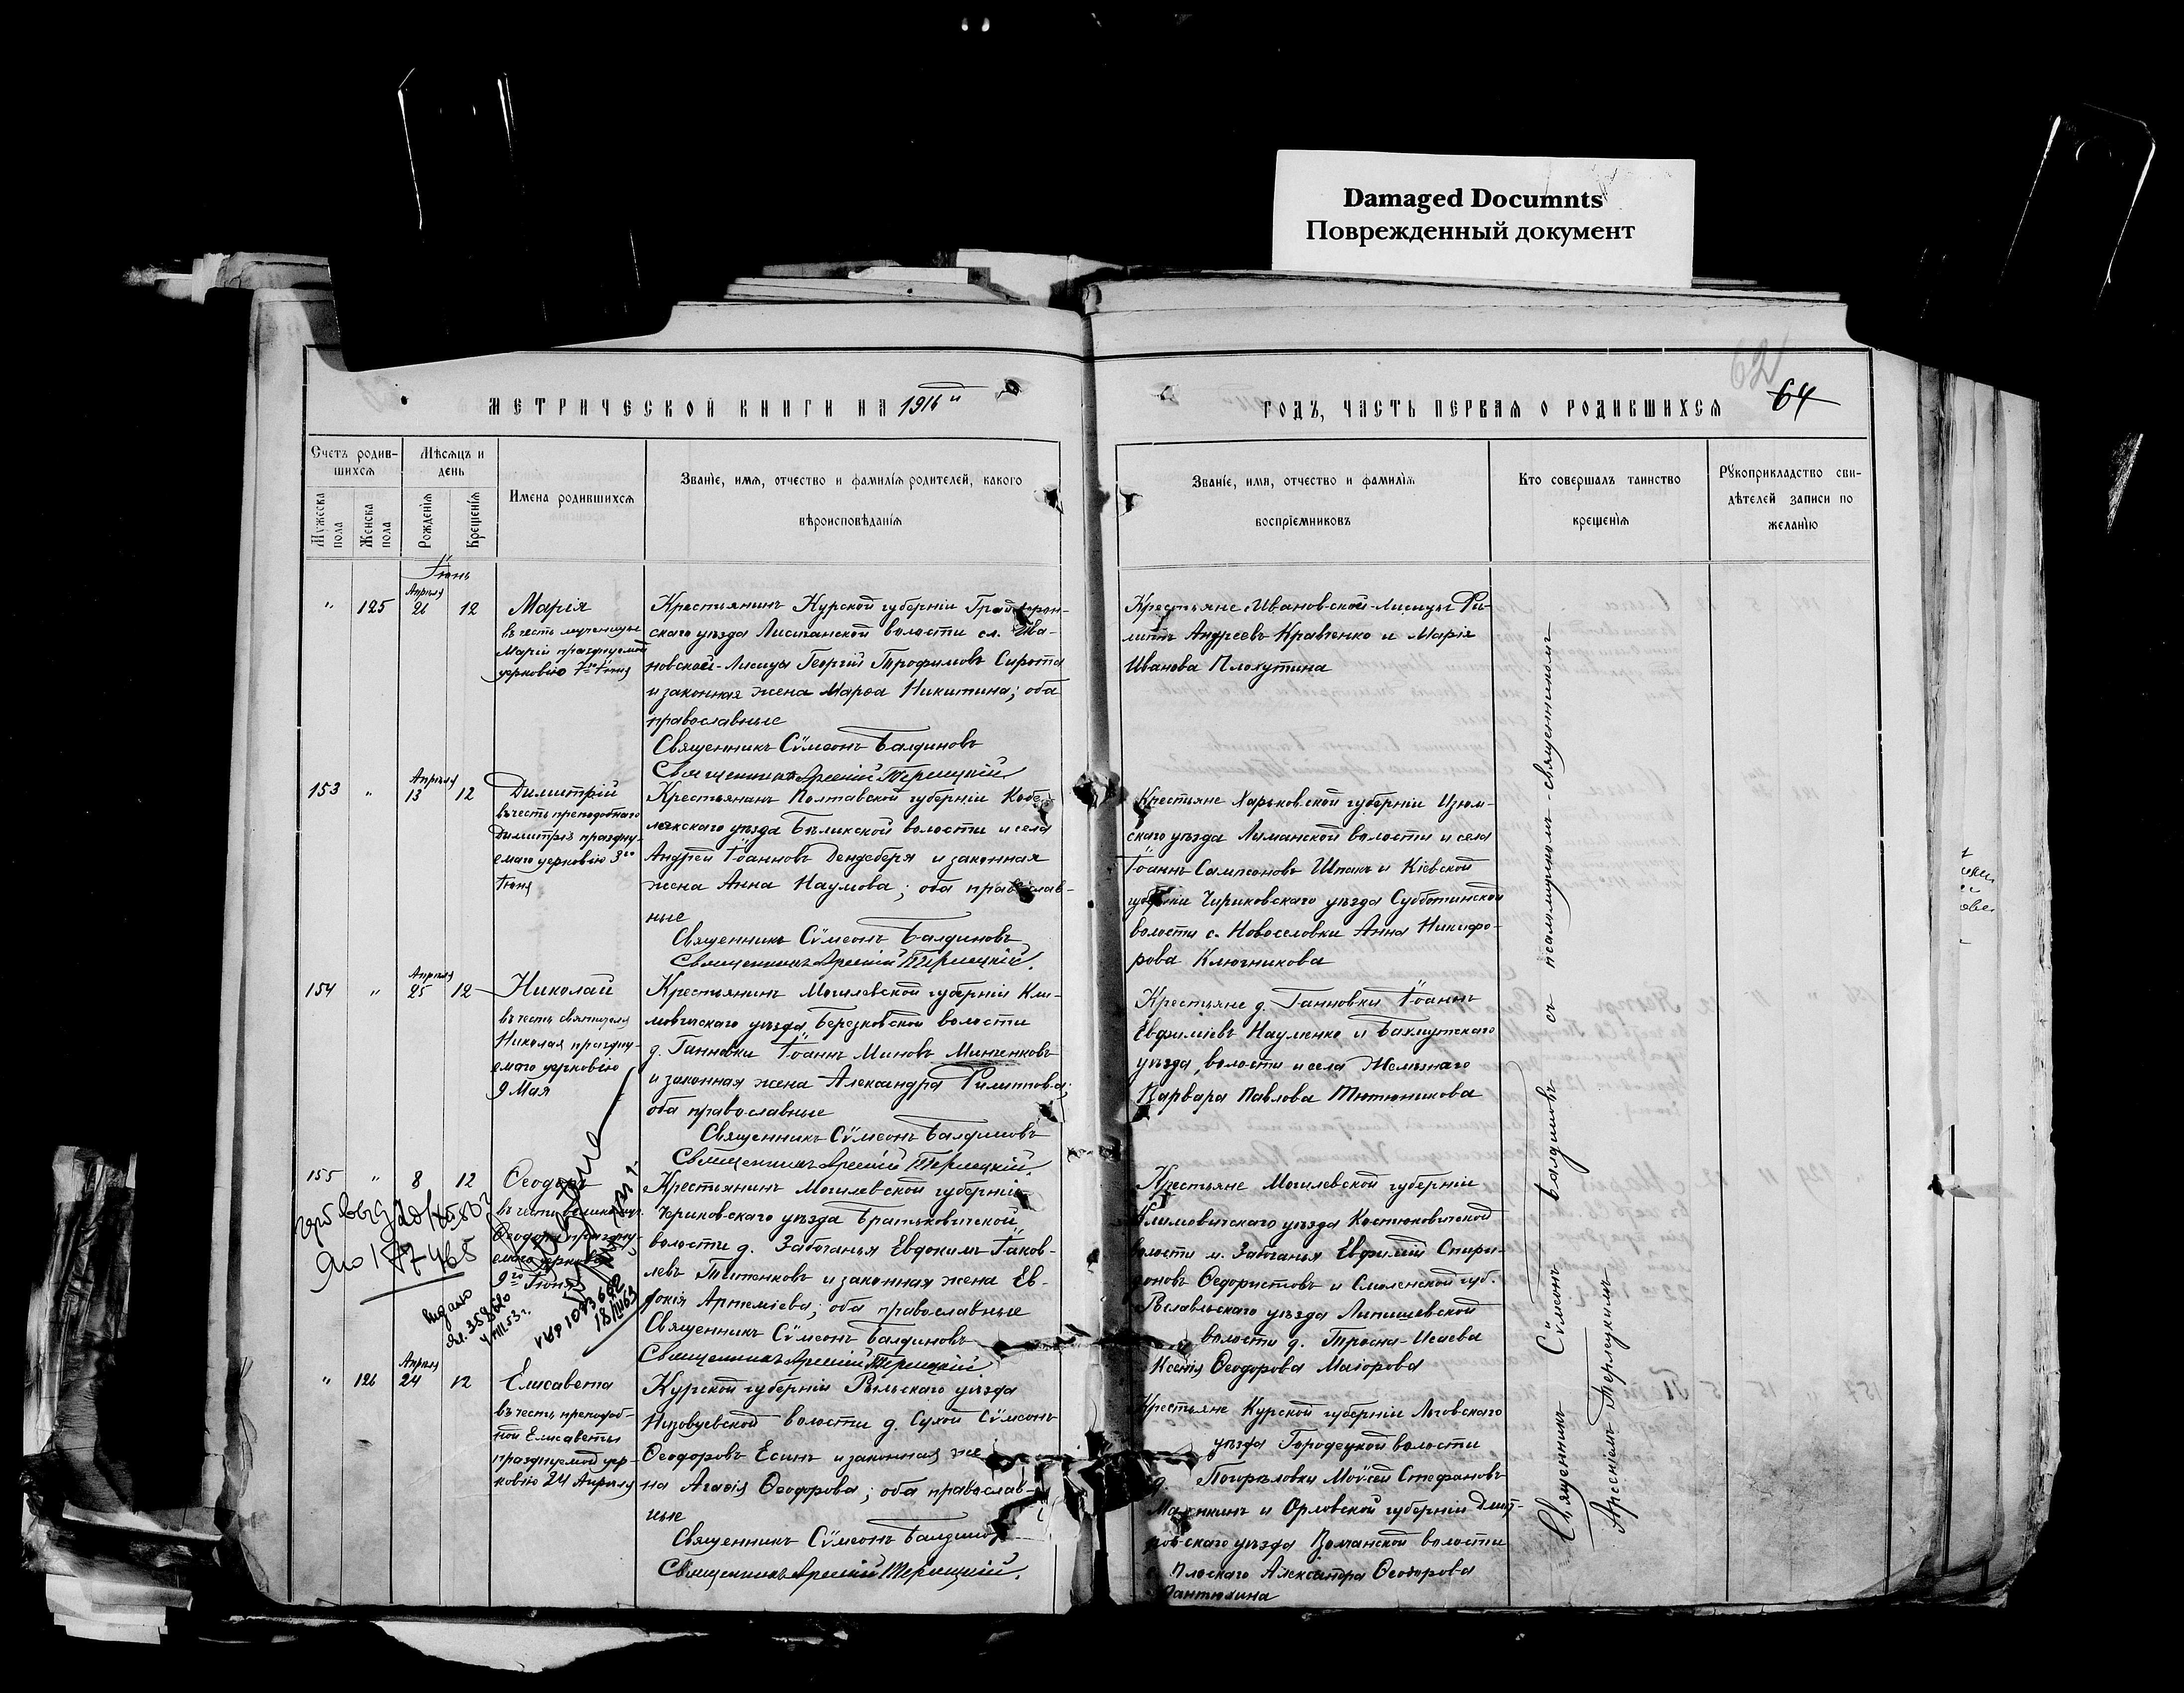 Damaged Documnts
Поврежденный документ
62
64
МЕТРИЧЕСКОЙ КНИГИ НА 1916й
ГОДЪ, ЧАСТЬ ПЕРВАЯ О РОДИВШИХСЯ
Счетъ родив-
шихся
Мужеска
пола
Женска
пола
Мѣсяцъ и
день
Рожденія
Крещенія
Имена родившихся
Званіе, имя, отчество и фамилія родителей, какого
вѣроисповѣданія
Званіе, имя, отчество и фамилія
воспріемниковъ
Кто совершалъ таинство
крещенія
Рукоприкладство сви-
дѣтелей записи по
желанію
Іюнь
Апрѣля
" 125 26 12
Марія
въ честь мученицы
Маріи празднуемой
церковію 7го Іюня
Крестьянинъ Курской губерніи Грайворон-
скаго уѣзда Лисичанской волости сл. Ива-
новской-Лисицы Георгій Трофимовъ Сирота
и законная жена Марѳа Никитина; оба
православные
Священникъ Сѵмеонъ Балдиновъ
Священникъ Арсеній Терлецкій
Крестьяне Ивановской-Лисицы Фи-
липпъ Андреевъ Кравченко и Марія
Иванова Плохутина
Апрѣля
153 " 13 12
Димитрій
въ честь преподобнаго
Димитрія праздну-
емаго церковію 3го
Іюня
Крестьянинъ Полтавской губерніи Кобе-
лякскаго уѣзда Бѣликской волости и села
Андрей Іоанновъ Дендеберя и законная
жена Анна Наумова; оба православ-
ные
Священникъ Сѵмеонъ Балдиновъ
Священникъ Арсеній Терлецкій.
Крестьяне Харьковской губерніи Изюм-
скаго уѣзда Лиманской волости и села
Іоаннъ Сампсоновъ Шпакъ и Кіевской
губерніи Чириковскаго уѣзда Субботинской
волости с. Новоселовки Анна Никифо-
рова Ключникова
Апрѣля
154 " 25 12
Николай
въ честь святителя
Николая праздну-
емаго церковію
9 Мая
Крестьянинъ Могилевской губерніи Кли-
мовичскаго уѣзда, Березковской волости
д. Ганновки Іоаннъ Миновъ Минченковъ
и законная жена Александра Филиппова;
оба православные
Священникъ Сѵмеонъ Балдиновъ
Священникъ Арсеній Терлецкій.
Крестьяне д. Ганновки Іоаннъ
Евфиміевъ Науменко и Бахмутскаго
уѣзда, волости и села Желѣзнаго
Варвара Павлова Тютюникова
155 " 8 12
Ѳеодоръ
въ честь великомуч.
Ѳеодора праздну-
емаго церковію
9го Іюня
Крестьянинъ Могилевской губерніи
Чериковскаго уѣзда Братьковичской
волости д. Забоганья Евдокимъ Іаков-
левъ Титенковъ и законная жена Ев-
докія Артеміева; оба православные
Священникъ Сѵмеонъ Балдиновъ
Священникъ Арсеній Терлецкій
Крестьяне Могилевской губерніи
Климовичскаго уѣзда Костюковичской
волости м. Забоганья Евфимій Спири-
доновъ Ѳедористовъ и Смоленской губ.
Рославльскаго уѣзда Липишевской
волости д. Тросна-Исаева
Ксенія Ѳеодорова Маіорова
Апрѣля
" 126 24 12
Елисавета
въ честь преподоб-
ной Елисаветы
празднуемой цер-
ковію 24 Апрѣля
Курской губерніи Рыльскаго уѣзда
Низовцевской волости д. Сухой Сѵмеонъ
Ѳеодоровъ Есинъ и законная же
на Агаѳія Ѳеодорова; оба православ-
ные
Священникъ Сѵмеонъ Балдино
Священникъ Арсеній Терлецкій.
Крестьяне Курской губерніи Льговскаго
уѣзда Городецкой волости
д. Погорѣловки Моѵсей Стефановъ
и Орловской губерніи Дмит-
ровскаго уѣзда Волчанской волости
с. Плоскаго Александра Ѳеодорова
Пантюхина
Священникъ Сѵмеонъ Балдиновъ съ псаломщикомъ-священникомъ
Арсеніемъ Терлецкимъ